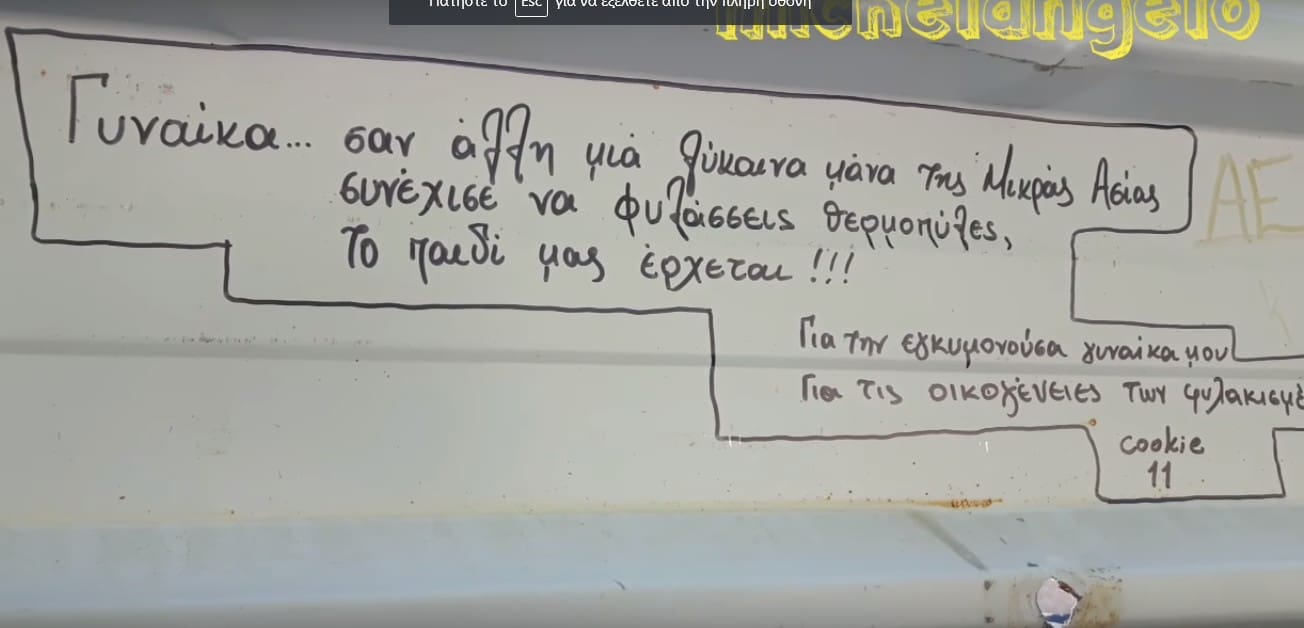 Πατήστε το Esc για να εξέλθετε από την πλήρη οθόνη
michelangelo
Γυναίκα... σαν άλλη μιά λύκαινα μάνα της Μικράς Ασίας
συνέχισε να φυλάσσεις θερμοπύλες,
Το παιδί μας έρχεται!!!
ΑΕ
Για την εγκυμονούσα γυναίκα μου
Για τις οικογένειες των φυλακισμέ
cookie
11